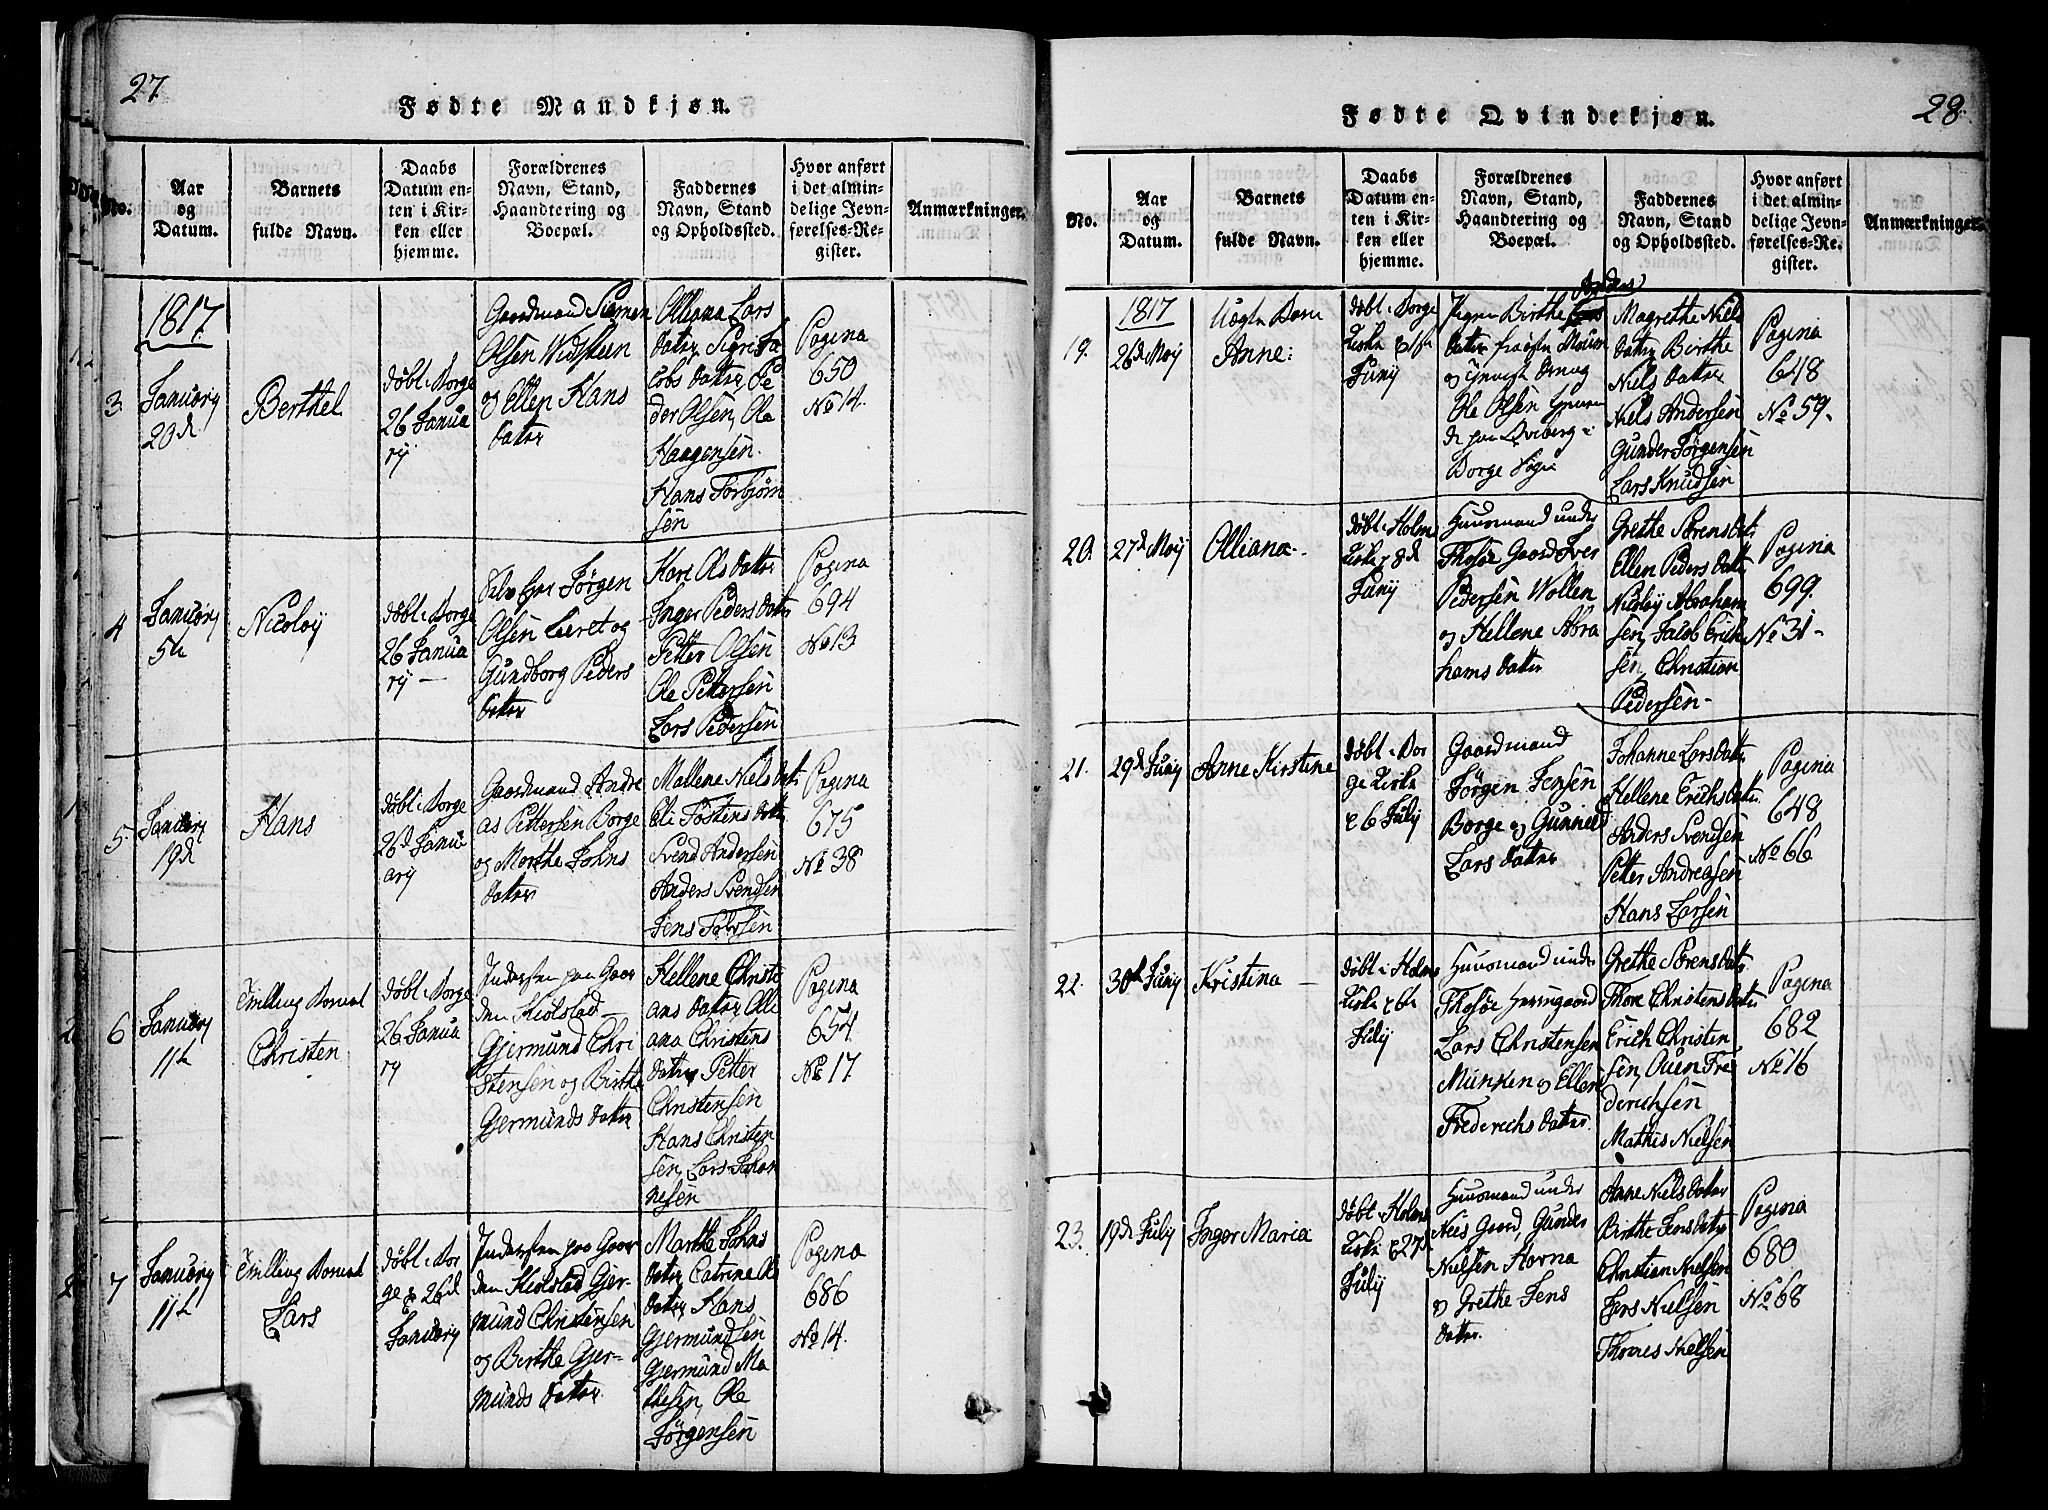 27.
Fødte Mandkjøn.
No.
Aar
og
Datum.
Barnets
fulde Navn.
Daabs
Datum en-
ten i Kir-
ken eller
hjemme.
Forældrenes
Navn, Stand,
Haandtering og
Boepæl.
Faddernes
Navn, Stand
og Opholdssted.
Hvor anført
i det almin-
delige Jevn-
førelses-Re-
gister.
Anmærkninger.
1817.
3
January
20d
Berthel
døbt i Borge
26 Janua
rij
Gaardmand Siemen
Olsen Widsteen
og Ellen Hans
datter
Olliana Lars
datter Sigri Ja
cobs datter Pe
der Olsen, Ole
Haagensen.
Hans Torbjørn
sen
Pagina
650
No 14.
4
January
5te
Nicolaij
døbt i Borge
26 Janua
rij —
Jørgen
Olsen Leret og
Gundborg Peders
datter
Kari Ols datter
Inger Peders datter
Petter Olsen
Ole Pettersen
Lars Pedersen
Pagina
694
No 13
5
January
19d
Hans
døbt i Borge
26d Janu
ary
Gaardmand Andre
as Pettersen Borge
og Marthe Johns
datter
Mallene Niels datter
Eli Tostens datter
Svend Andersen
Anders Svendsen
Jens
Pagina
675
No 38
6
January
11te
Tvilling Barnet
Christen
døbt i Borge
26 Janua
ry
Inderster paa Gaar
den Kiolstad
Gjermund Chri
stensen og Birthe
Gjermunds datter
Hellene Christi
ans datter Olli
ana Christens
datter Petter
Christensen
Hans Christen
sen, Lars Johan
nesen
Pagina
654
No 17
7
January
11te
Tvilling Barnet
Lars
døbt i Bor
ge d 26d
January
Inderster paa Gaar
den Kiolstad Gjer-
mund Christensen
og Birthe Gjer-
munds datter
Marthe Johns
datter Catrine Ols
datter Hans
Gjermundsen
Gjermund Ma
thesen, Ole
Jørgensen
Pagina
686
No 14.
28.
Fødte Qvindekjøn.
No.
Aar
og
Datum.
Barnets
fulde Navn.
Daabs
Datum en-
ten i Kir-
ken eller
hjemme.
Forældrenes
Navn, Stand,
Haandtering og
Boepæl.
Faddernes
Navn, Stand
og Opholdssted.
Hvor anført
i det almin-
delige Jevn-
førelses-Re-
gister.
Anmærkninger.
1817
19.
26d Maij
Uægte Barn
Anne:
døbt i Borge
Kirke d 1ste
Junij
Pigen Birthe Anders
datter fra
og
Ole Olsen
de paa i
Borge Sogn
Magrethe Niels
datter Birthe
Niels datter
Niels Andersen
Gunder Jørgensen
Lars Knudsen
Pagina
648
No 59.
20.
27d Maij
Olliana.
døbt i Holm
Kirke 8d
Junij
Huusmand under
Thosøe Gaard Iver
Pedersen Wollen
og Hellene Abra
hams datter
Grethe Sørens datter
Ellen Peders datter
Nicolaij Abraham
sen, Jacob Erich
sen, Christian
Pedersen-
Pagina
699.
No 31-
21.
29d Junij
Anne Kirstine
døbt i Bor
ge Kirke
d 6 Julij
Gaardmand
Jørgen Jensen
Borge og Gunnild
Lars datter
Johanne Lars datter
Hellene Erichs datter
Anders Svendsen
Petter Andreasen
Hans Larsen
Pagina
648
No 66
22.
30te Junij
Kristina
døbt i Holm
Kirke d 6te
Julij
Huusmand under
Thosøe Herregaard
Lars Christensen
Munken og Ellen
Frederichs datter.
Grethe Sørens datter
Thore Christens datter
Erich Christen
sen, Ouen Fre
derichsen
Mathis Nielsen
Pagina
682
No 16
23.
19d Julij
Inger Maria
døbt i Holm
Kirke d 27d
Julij
Huusmand under
Niis Gaard, Gunder
Nielsen Horna
og Grethe Jens
datter.
Anne Niels datter
Birthe Jens datter
Christian Nielsen
Jens Nielsen
Thores Nielsen
Pagina
680
No 68